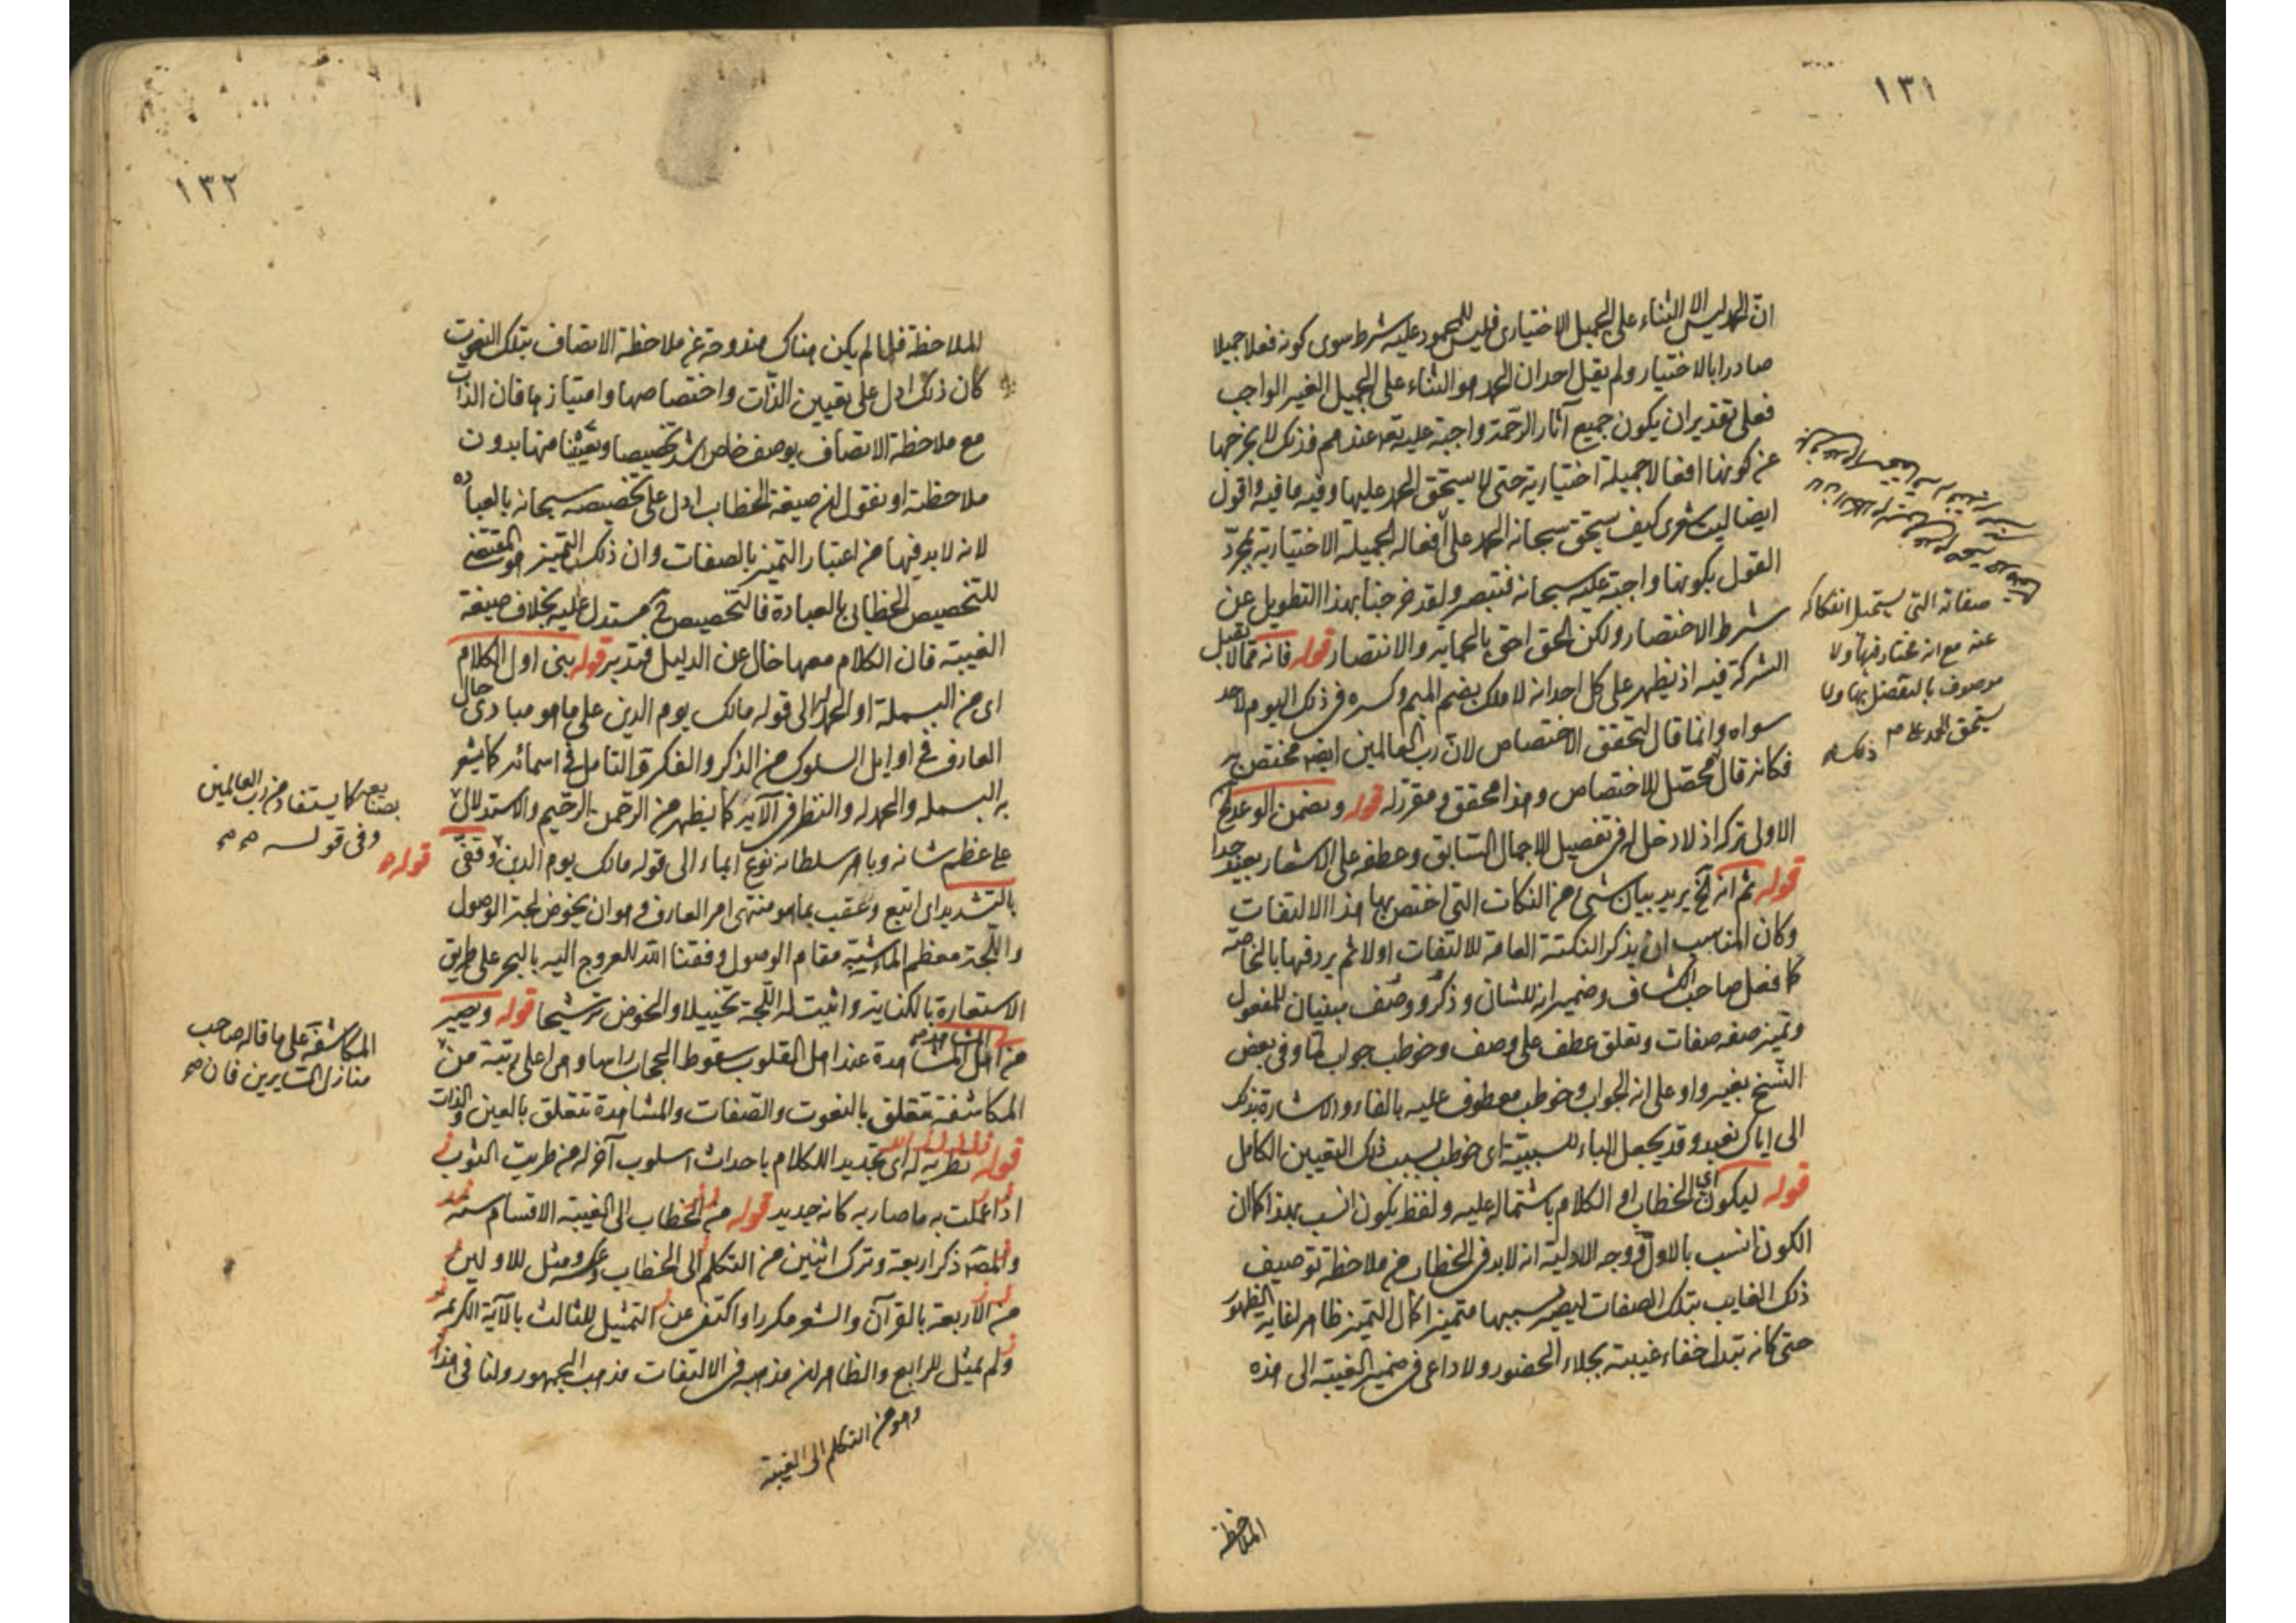 ١٣١
ان الحمد ليس الا الثناء على الجميل الاختيارى فليس للمحمود عليه شرط سوى كونه فعلا جميلا
صادرا بالاختيار ولم يقل احد ان الحمد هو الثناء على الجميل الغير الواجب
فعلى تقدير ان يكون جميع آثار الرحمة واجبة عليه تعـ عندهم فذلك لا يخرجها
عن كونها افعالا جميلة اختيارية حتى لا يستحق الحمد عليها وفيه ما فيه واقول
ايضا ليت شعرى كيف يستحق سبحانه الحمد على افعاله الجميلة الاختيارية بمجرد
القول بكونها واجبة عليه سبحانه فتبصر ولقد خرجنا بهذا التطويل عن
شرط الاختصار ولكن الحق احق بالحماية والانتصار قوله فانه مما لا يقبل
الشركة فيه اذ يظهر على كل احد انه لا ملك بضم الميم وكسره فى ذلك اليوم لاحد
سواه وانما قال لتحقق الاختصاص لان رب العالمين ايضا مختص به
فكانه قال محصل للاختصاص وهذا محقق ومقرر له قوله وتضمن الوعد الخ
الاولى تركه اذ لا دخل له فى تفصيل الاجمال السابق وعطفه على الاشعار بعيد جدا
قوله ثم انه الخ يريد بيان شئ من النكات التى اختص بها هذا الالتفات
وكان المناسب ان يذكر النكتة العامة للالتفات اولا ثم يردفها بالخاصة
كما فعل صاحب الكشاف وضمير انه للشان وذكر ووصف مبنيان للمفعول
وتميز صفه صفات وتعلق عطف على وصف وخوطب جواب لما وفى بعض
النسخ بغير واو على انه الجواب وخوطب معطوف عليه بالفاء والاشارة بذلك
الى اياك نعبد وقد يجعل الباء للسببية اى خوطب بسبب ذلك التعيين الكامل
قوله ليكون اى الخطاب او الكلام باشتماله عليه ولفظ يكون انسب بهذا كما ان
الكون انسب بالاول ووجه الادلية انه لابد فى الخطاب من ملاحظة توصيف
ذلك الغايب بتلك الصفات ليصير بسببها متميزا كمال التميز ظاهر لغاية الظهور
حتى كانه تبدل خفاء غيبته بجلاء الحضور ولا داعى فى ضمير الغيبة الى هذه
صفاته التى يستحيل انفكاكه
عنه مع انه مختار فيها ولا
موصوف بالتفضل بها ولا
يستحق الحمد على ذلك
الملاحظة
١٣٢
للملاحظة فلما لم يكن هناك مندوحة عن ملاحظة الاتصاف بتلك النعوت
كان ذلك ادل على تعيين الذات واختصاصها وامتيازها فان الذات
مع ملاحظة الاتصاف بوصف خاص اشد تخصيصا وتعينا منها بدون
ملاحظته او نقول ان صيغة الخطاب ادل على تخصيصه سبحانه بالعبادة
لانه لا بد فيها من اعتبار التميز بالصفات وان ذلك التميز هو المقتضى
للتخصيص الخطابى بالعبادة فالتخصيص ح مستدل عليه بخلاف صيغة
الغيبة فان الكلام معها خال عن الدليل فتدبر قوله بنى اول الكلام
اى من البسملة او الحمد لله الى قوله مالك يوم الدين على ما هو مبادى حال
العارف فى اوايل السلوك من الذكر والفكر والتامل فى اسمائه كما يشعر
به البسمله والحمدله والنظر فى آلائه كما يظهر من الرحمن الرحيم والاستدلال
بصنايعه كما يستفاد من رب العالمين
وفى قوله
على عظم شانه وباهر سلطانه نوع ايماء الى قوله مالك يوم الدين قوله وقفى
بالتشديد اى اتبع وعقب بما هو منتهى امر العارف وهو ان يخوض لجة الوصول
واللجة معظم الماء شبه مقام الوصول وفقنا الله للعروج اليه بالبحر على طريق
الاستعارة بالكناية واثبت له اللجة تخييلا والخوض ترشيحا قوله ويصير
من اهل المشاهدة المشاهدة عند اهل القلوب سقوط الحجاب راسا وهى اعلى رتبة من
المكاشفة على ما قاله صاحب
منازل السايرين فان
المكاشفة تتعلق بالنعوت والصفات والمشاهدة تتعلق بالعين والذات
قوله تطرية له اى تجديدا للكلام باحداث اسلوب آخر له من طريت الثوب
اذا عملت به ما صار به كانه جديد قوله من الخطاب الى الغيبة الاقسام ستة
والمصـ ذكر اربعة وترك اثنين من التكلم الى الخطاب وعكسه ومثل للاولين
من الاربعة بالقرآن والشعر مكررا واكتفى عن التمثيل للثالث بالآية الكريمة
ولم يمثل للرابع والظاهر ان مذهبه فى الالتفات مذهب الجمهور ولنا فى هذا
وهو من التكلم الى الغيبة